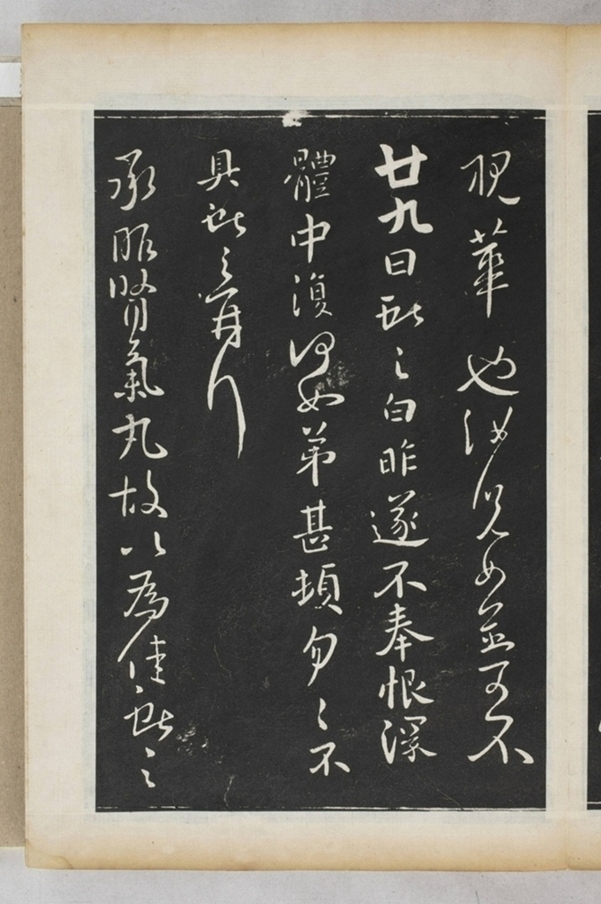 華也汝兒女並可不
廿九日獻之白昨遂不奉恨深
體中復何如弟甚頓匆匆不
具獻之再拜
承服腎氣丸故以為佳獻之